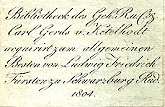 Bibliotheck des Geh. Raß
Carl Gerds v. Ketelhodt
acquirirt zum allgemeinen
Besten von Ludwig Friedrich
Fürsten zu Schwarzburg Rud.
1804.